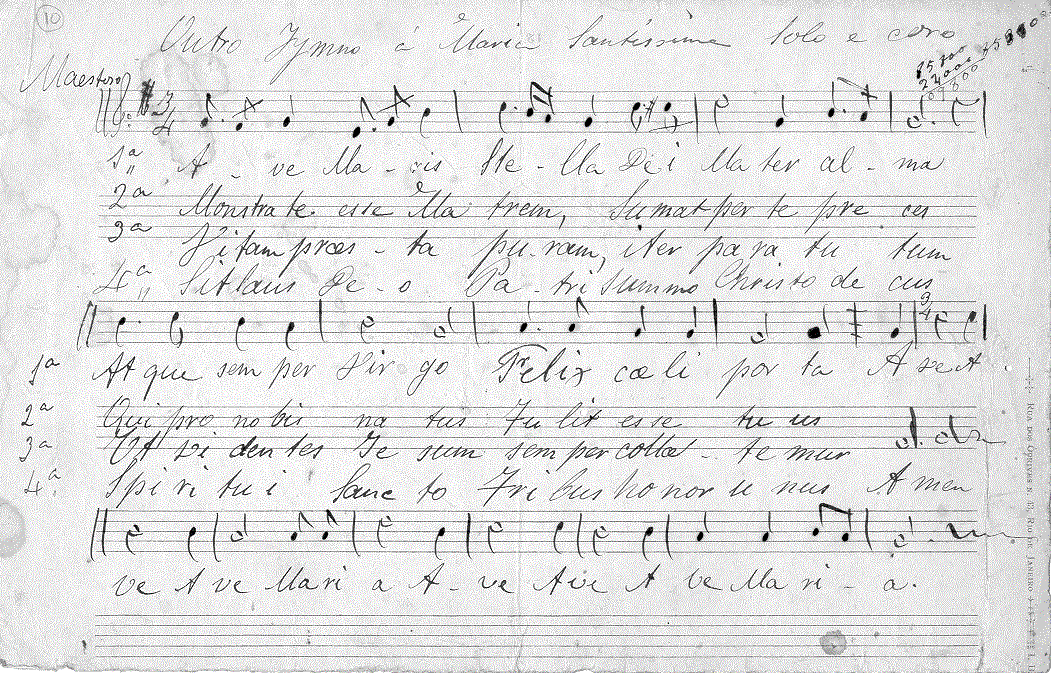 10
Outro Hymno á Maria Santissima Solo e coro
Maestoso
3/4
1ª A - ve Ma - ris Ste - lla Dei Ma ter al - ma
2ª Monstra te esse Ma trem, Sumat per te pre ces
3ª Vitam præs - ta pu - ram, iter pa ra tu tum
4ª Sit laus De - o Pa - tri summo Christo de cus
3/4
1ª At que sem per Vir go Felix cœ li por ta A ve A
2ª Qui pro no bis na tus Tu lit esse tu us
3ª Ut vi den tes Je sum semper collæ - te mur
4ª Spi ri tu i Sanc to Tri bus ho nor u nus Amen
ve A ve Ma ri a A - ve A ve A ve Ma ri - a.
Rua dos Ourives N. 13, Rio de Janeiro